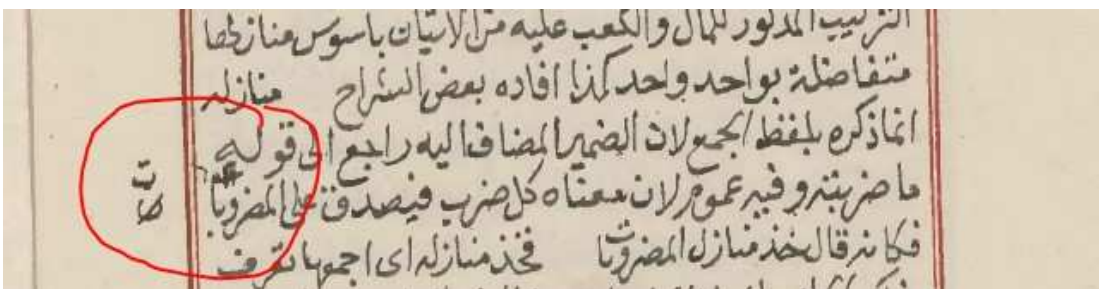 الترتيب المذكور للمال والكعب عليه من الاتيان باسوس منازلها
متفاضلة بواحد واحد كذا افاده بعض الشراح منازله
انما ذكره بلفظ الجمع لان الضمير المضاف اليه راجع الى قوله
ما ضربته وفيه عموم لان معناه كل ضرب فيصدق على المضروبا
ت
فكانه قال خذ منازل المضروبات فخذ منازله اى اجمعها تعرف